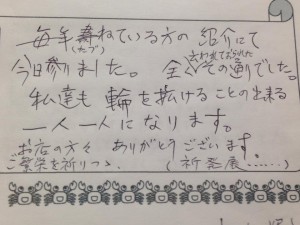 毎年尋ねている方の紹介にて
(たづ)
今日参りました。全く云われておられたその通りでした。
私達も輪を拡げることの出来る
一人一人になります。
お店の方々 ありがとうございます。
ご繁栄を祈りつゝ (祈発展……)